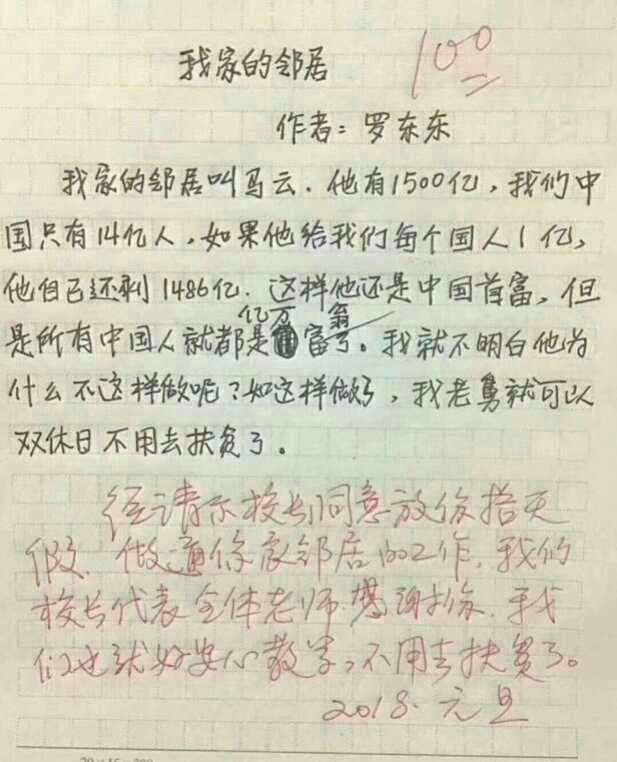 我家的邻居
100
作者：罗东东
我家的邻居叫马云.他有1500亿，我们中
国只有14亿人，如果他给我们每个国人1亿，
他自己还剩1486亿.这样他还是中国首富，但
亿万 翁
是所有中国人就都是富了。我就不明白他为
什么不这样做呢？如这样做了，我老舅就可以
双休日不用去扶贫了。
经请示校长同意放你拾天
假.做通你家邻居的工作，我们
校长代表全体老师感谢你.我
们也就好安心教学，不用去扶贫了。
2018.元旦